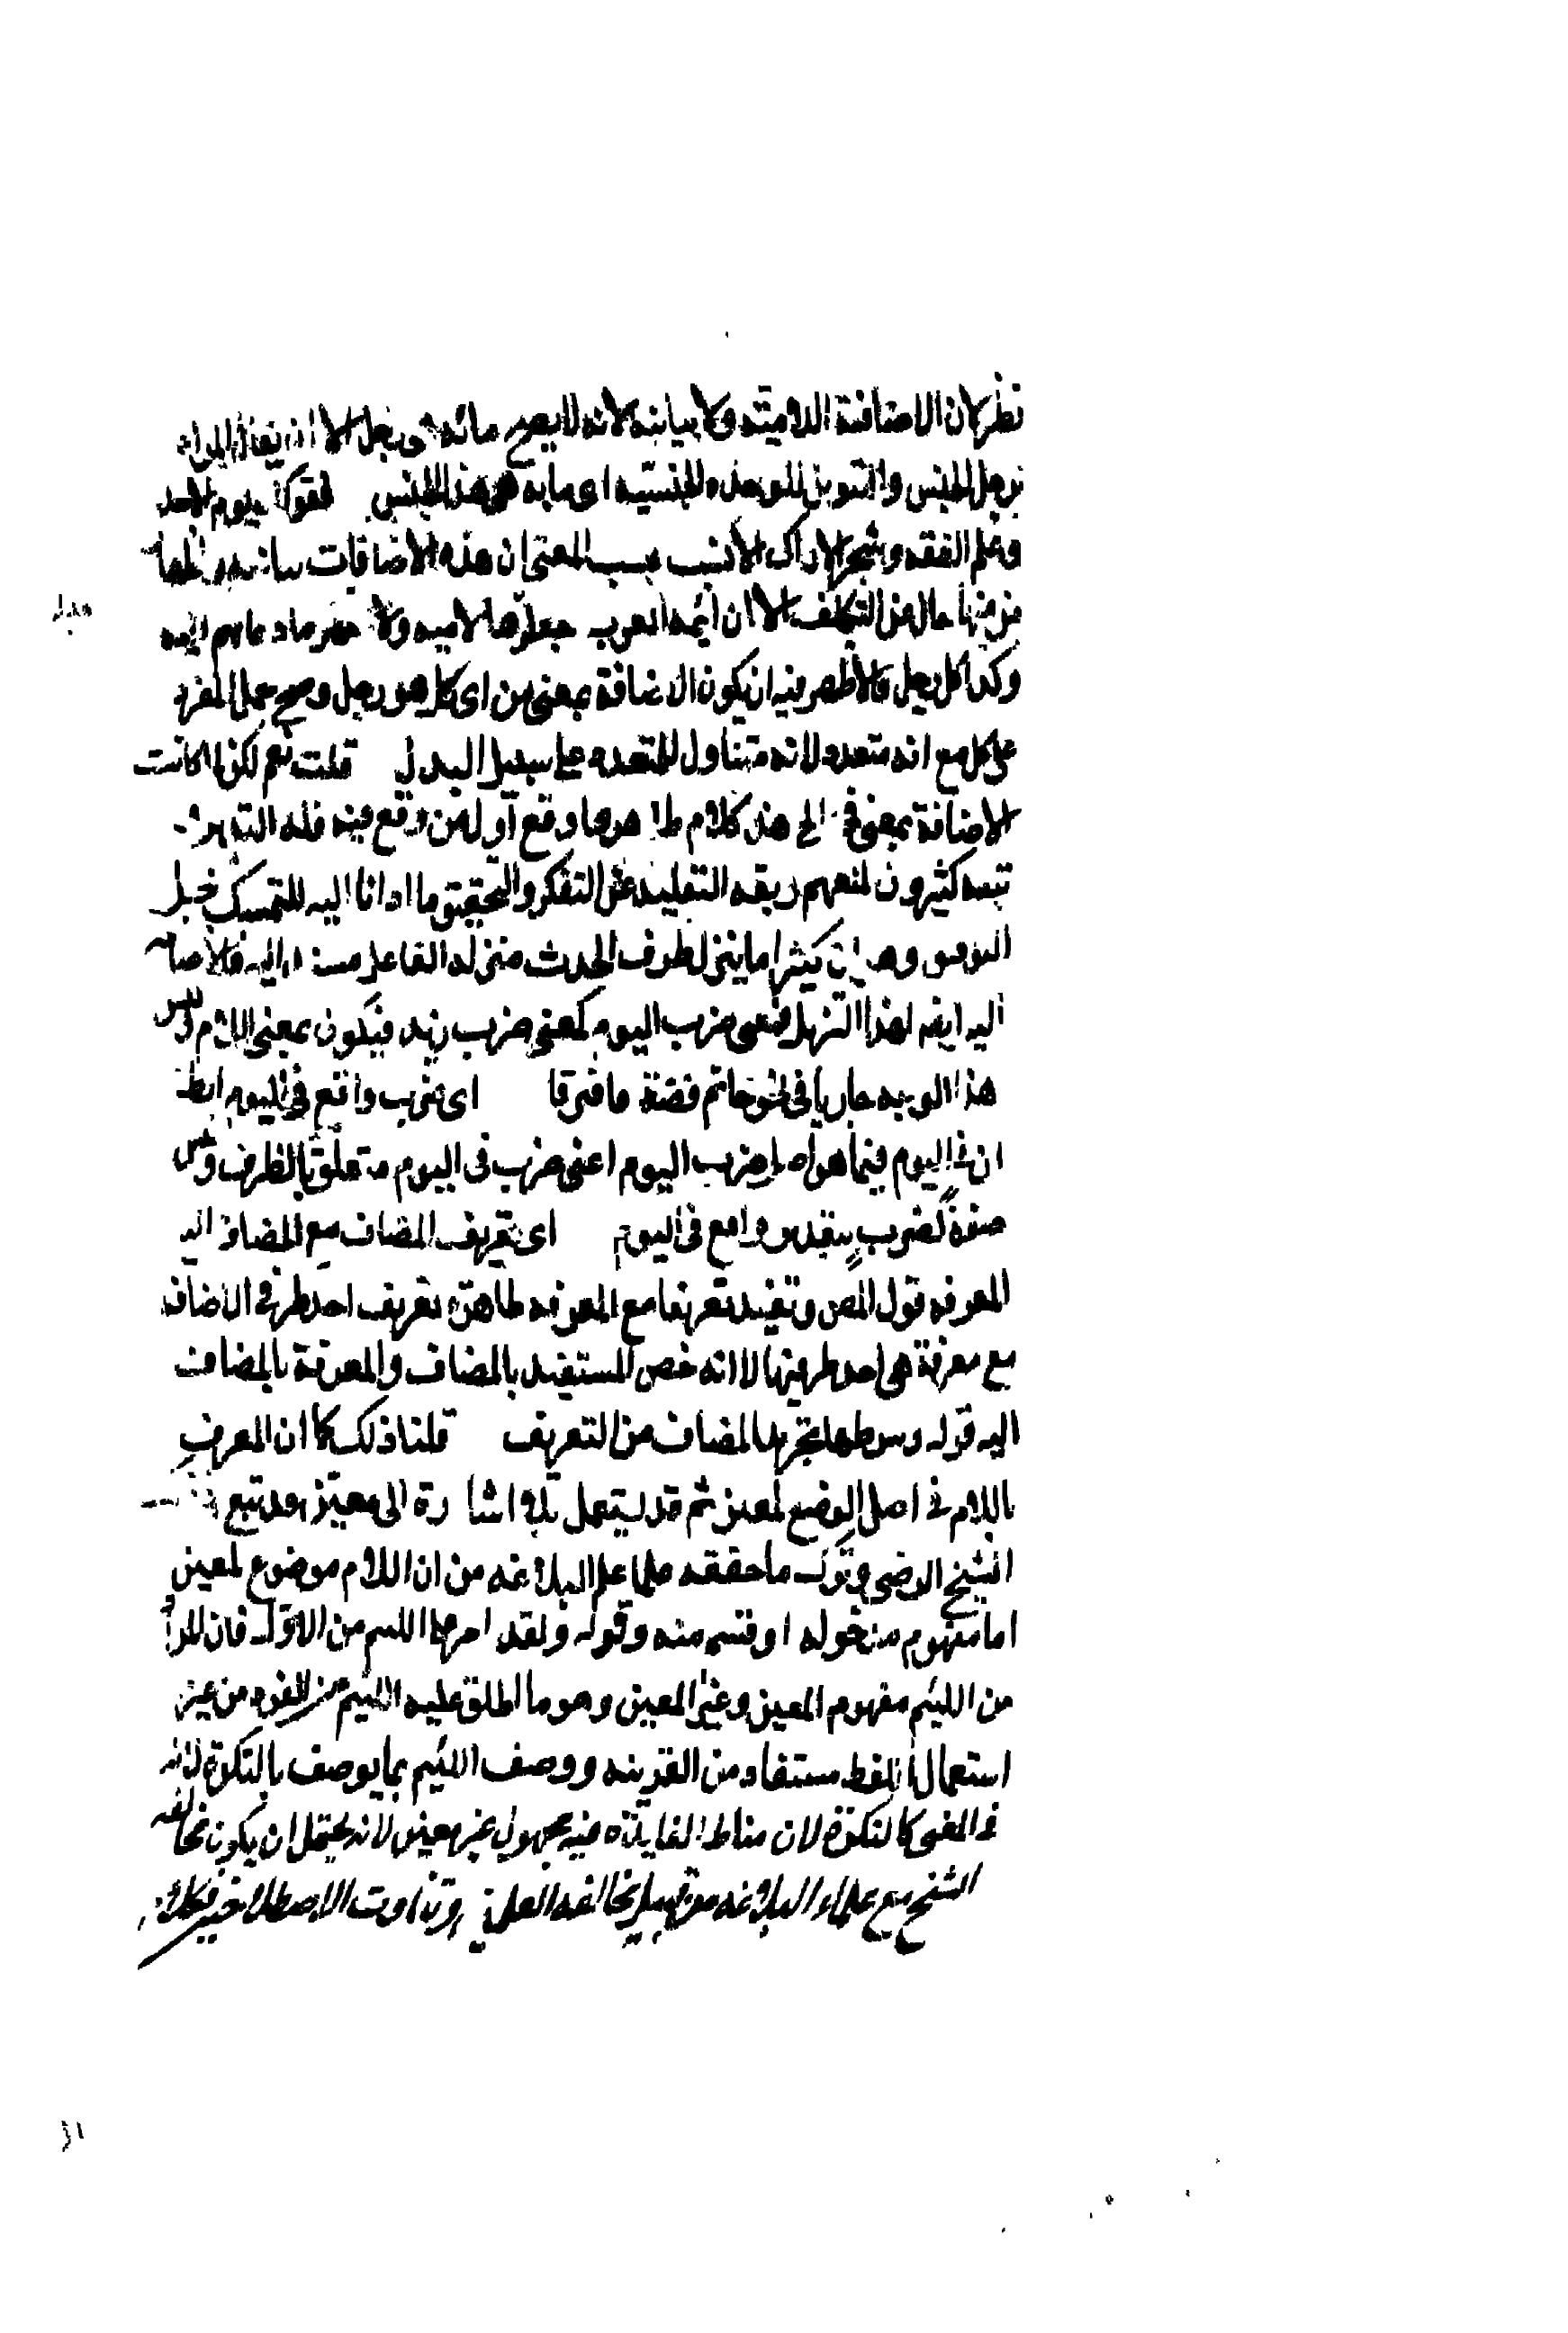 نظر لان الاضافة اللامية ولا بيانية لانه لا يصح مائة هى رجل الا ان يقال المراد
برجل الجنس والتنوين للوحدة الجنسية اى مائة هى هذا الجنس كقولك يوم الاحد
وعلم الفقه وشجر الاراك الانسب بحسب المعنى ان هذه الاضافات بيانية
حال عن التكلف الا ان ائمة العرب جعلوها لامية ولا
وكذا كل رجل والاظهر فيه ان يكون الاضافة بمعنى من اى كل هو رجل وصح حمل المفرد
على كل مع انه متعدد لانه متناول للمتعدد على سبيل البدل قلت نعم لكن لما كانت
الاضافة بمعنى فى الخ هذا كلام ظاهرى وقع اول من وقع فيه فله
تبعه كثيرون لمنعهم ربقة التقليد عن التفكر والتحقيق ما ادانا اليه التمسك بحبل
التوفيق وهو ان كثيرا ما ينزل ظرف الحدث منزلة الفاعل مسندا اليه فالاضافة
اليه ايضا لهذا التنزيل فمعنى ضرب اليوم كمعنى ضرب زيد فيكون بمعنى اللام وليس
هذا الوجه جاريا فى نحو خاتم فضة فافترقا اى ضرب واقع فى اليوم
ان فى اليوم فيما هو اصل ضرب اليوم اعنى ضرب فى اليوم متعلق بالظرف وليس
صفة لضرب بتقدير واقع فى اليوم اى تعريف المضاف مع المضاف اليه
المعرفة قول المص وتفيد تعريفا مع المعرفة ظاهره تعريف احد طرفى الاضافة
مع معرفة هى احد طرفيها الا انه خص المستفيد بالمضاف والمعرفة بالمضاف
اليه قوله وشرطها تجريد المضاف من التعريف قلنا ذلك كما ان المعرف
باللام فى اصل الوضع لمعين ثم قد يستعمل بلا اشارة الى معين وقد تبع
الشيخ الرضى وترك ما حققه علماء علم البلاغة من ان اللام موضوع لمعين
اما مفهوم مدخوله او قسم منه وقوله ولقد امر على اللئيم من الاول فان المراد
من اللئيم مفهوم المعين وغير المعين وهو ما اطلق عليه اللئيم من الفرد من غير
استعمال اللفظ مستفاد من القرينة ووصف اللئيم بما يوصف بالنكرة لانه
فى المعنى كالنكرة لان مناط الفايدة فيه مجهول غير معين لانه يحتمل ان يكون مخالفة
الشيخ مع علماء البلاغة من قبيل مخالفة العلمين وتفاوت الاصطلاحين